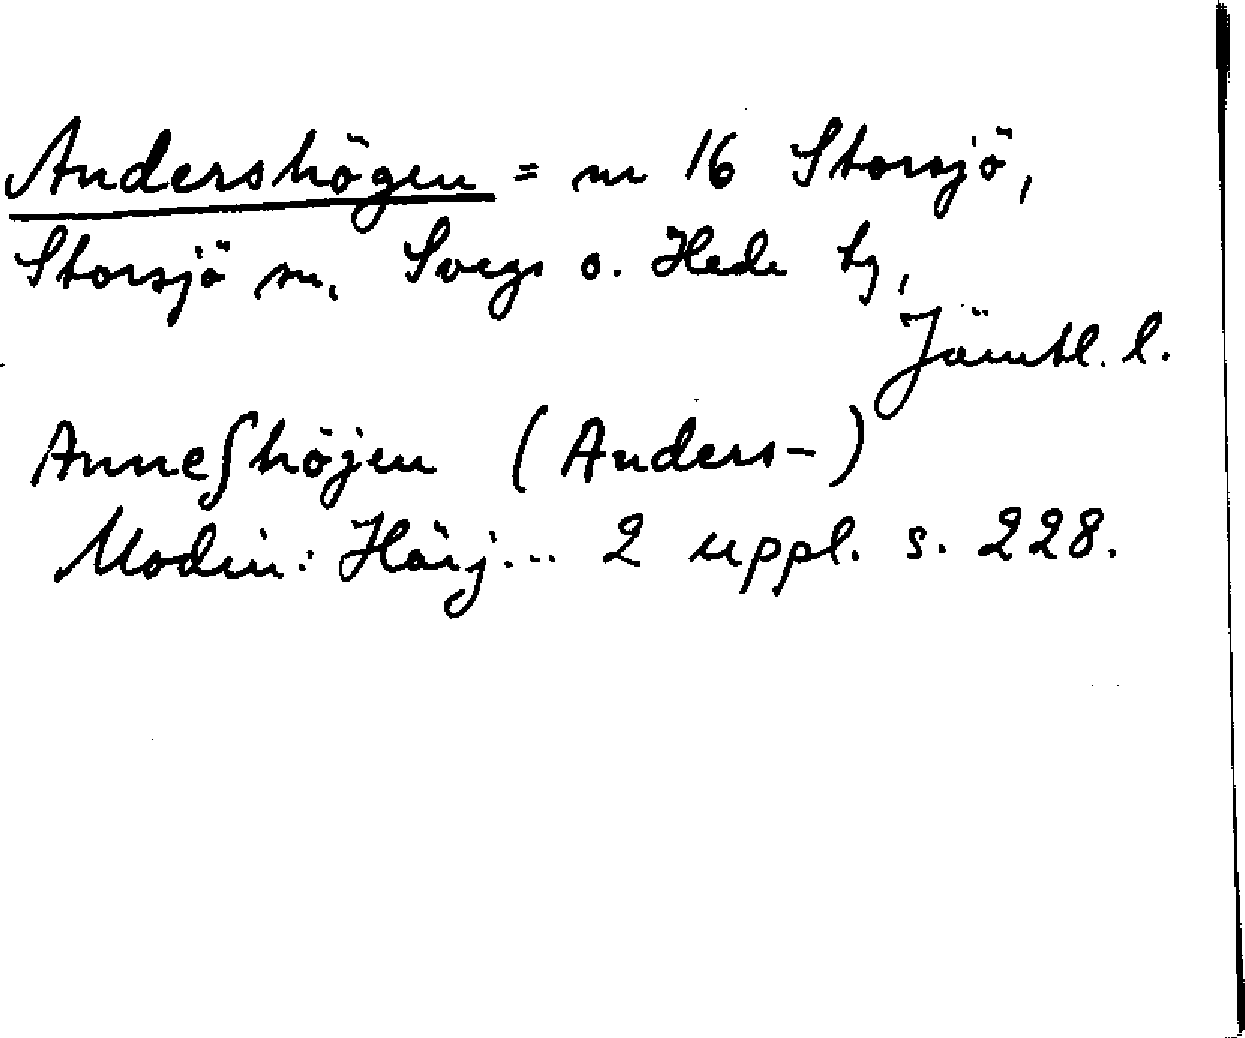 Andershögen = nr 16 Storsjö,
Storsjö sn, Svegs o. Hede tg,
Jämtl. l.
Anneʃhöjen (Anders-)
Modin: Härj... 2 uppl. s. 228.